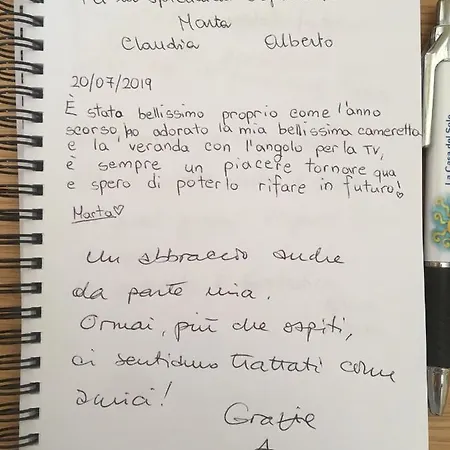 Marta
Claudia Alberto
20/07/2019
È stata bellissimo proprio come l'anno
scorso, ho adorato la mia bellissima cameretta
e la veranda con l'angolo per la TV,
è sempre un piacere tornare qua
e spero di poterlo rifare in futuro!
Marta♡
Un abbraccio anche
da parte mia.
Ormai, più che ospiti,
ci sentiamo trattati come
amici!
Grazie
A
La Casa del Sole